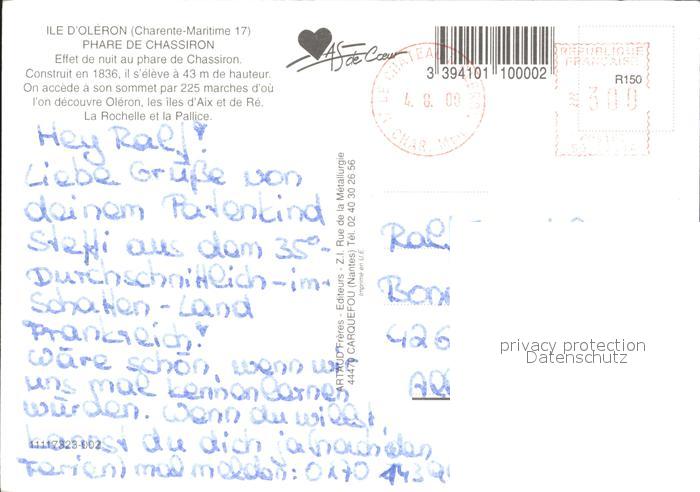 ILE D'OLÉRON (Charente-Maritime 17)
PHARE DE CHASSIRON
Effet de nuit au phare de Chassiron.
Construit en 1836, il s'élève à 43 m de hauteur.
On accède à son sommet par 225 marches d'où
l'on découvre Oléron, les îles d'Aix et de Ré.
La Rochelle et la Pallice.
AS de Cœur
3 394101 100002
LE CHATEAU
4. 8. 00
17 CHAR. MME
REPUBLIQUE
FRANÇAISE
R150
300
Hey Ralf!
Liebe Grüße von
deinem Patenkind
Steffi aus dem 35°-
Durchschnittlich-im-
Schatten-Land
Frankreich!
Wäre schön, wenn wir
uns mal kennenlernen
würden. Wenn du willst,
kannst du dich ja (nach den
Ferien) mal melden: 0170 443
ARTAUD Frères - Editeurs - Z.I. Rue de la Métallurgie
44470 CARQUEFOU (Nantes) Tél. 02 40 30 26 56
Imprimé en U.E.
Ralf
426
privacy protection
Datenschutz
11117323-002